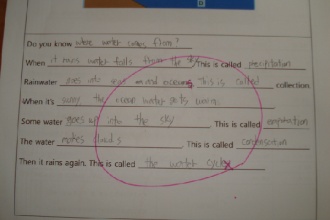 Do you know where water comes from?
When it rains water falls from the sky This is called precipitation
Rainwater goes into and This is called collection
When it's suny the water gets warm
Some water goes up into the sky This is called evaporation
The water makes This is called condensation
Then it rains again. This is called the water cycle